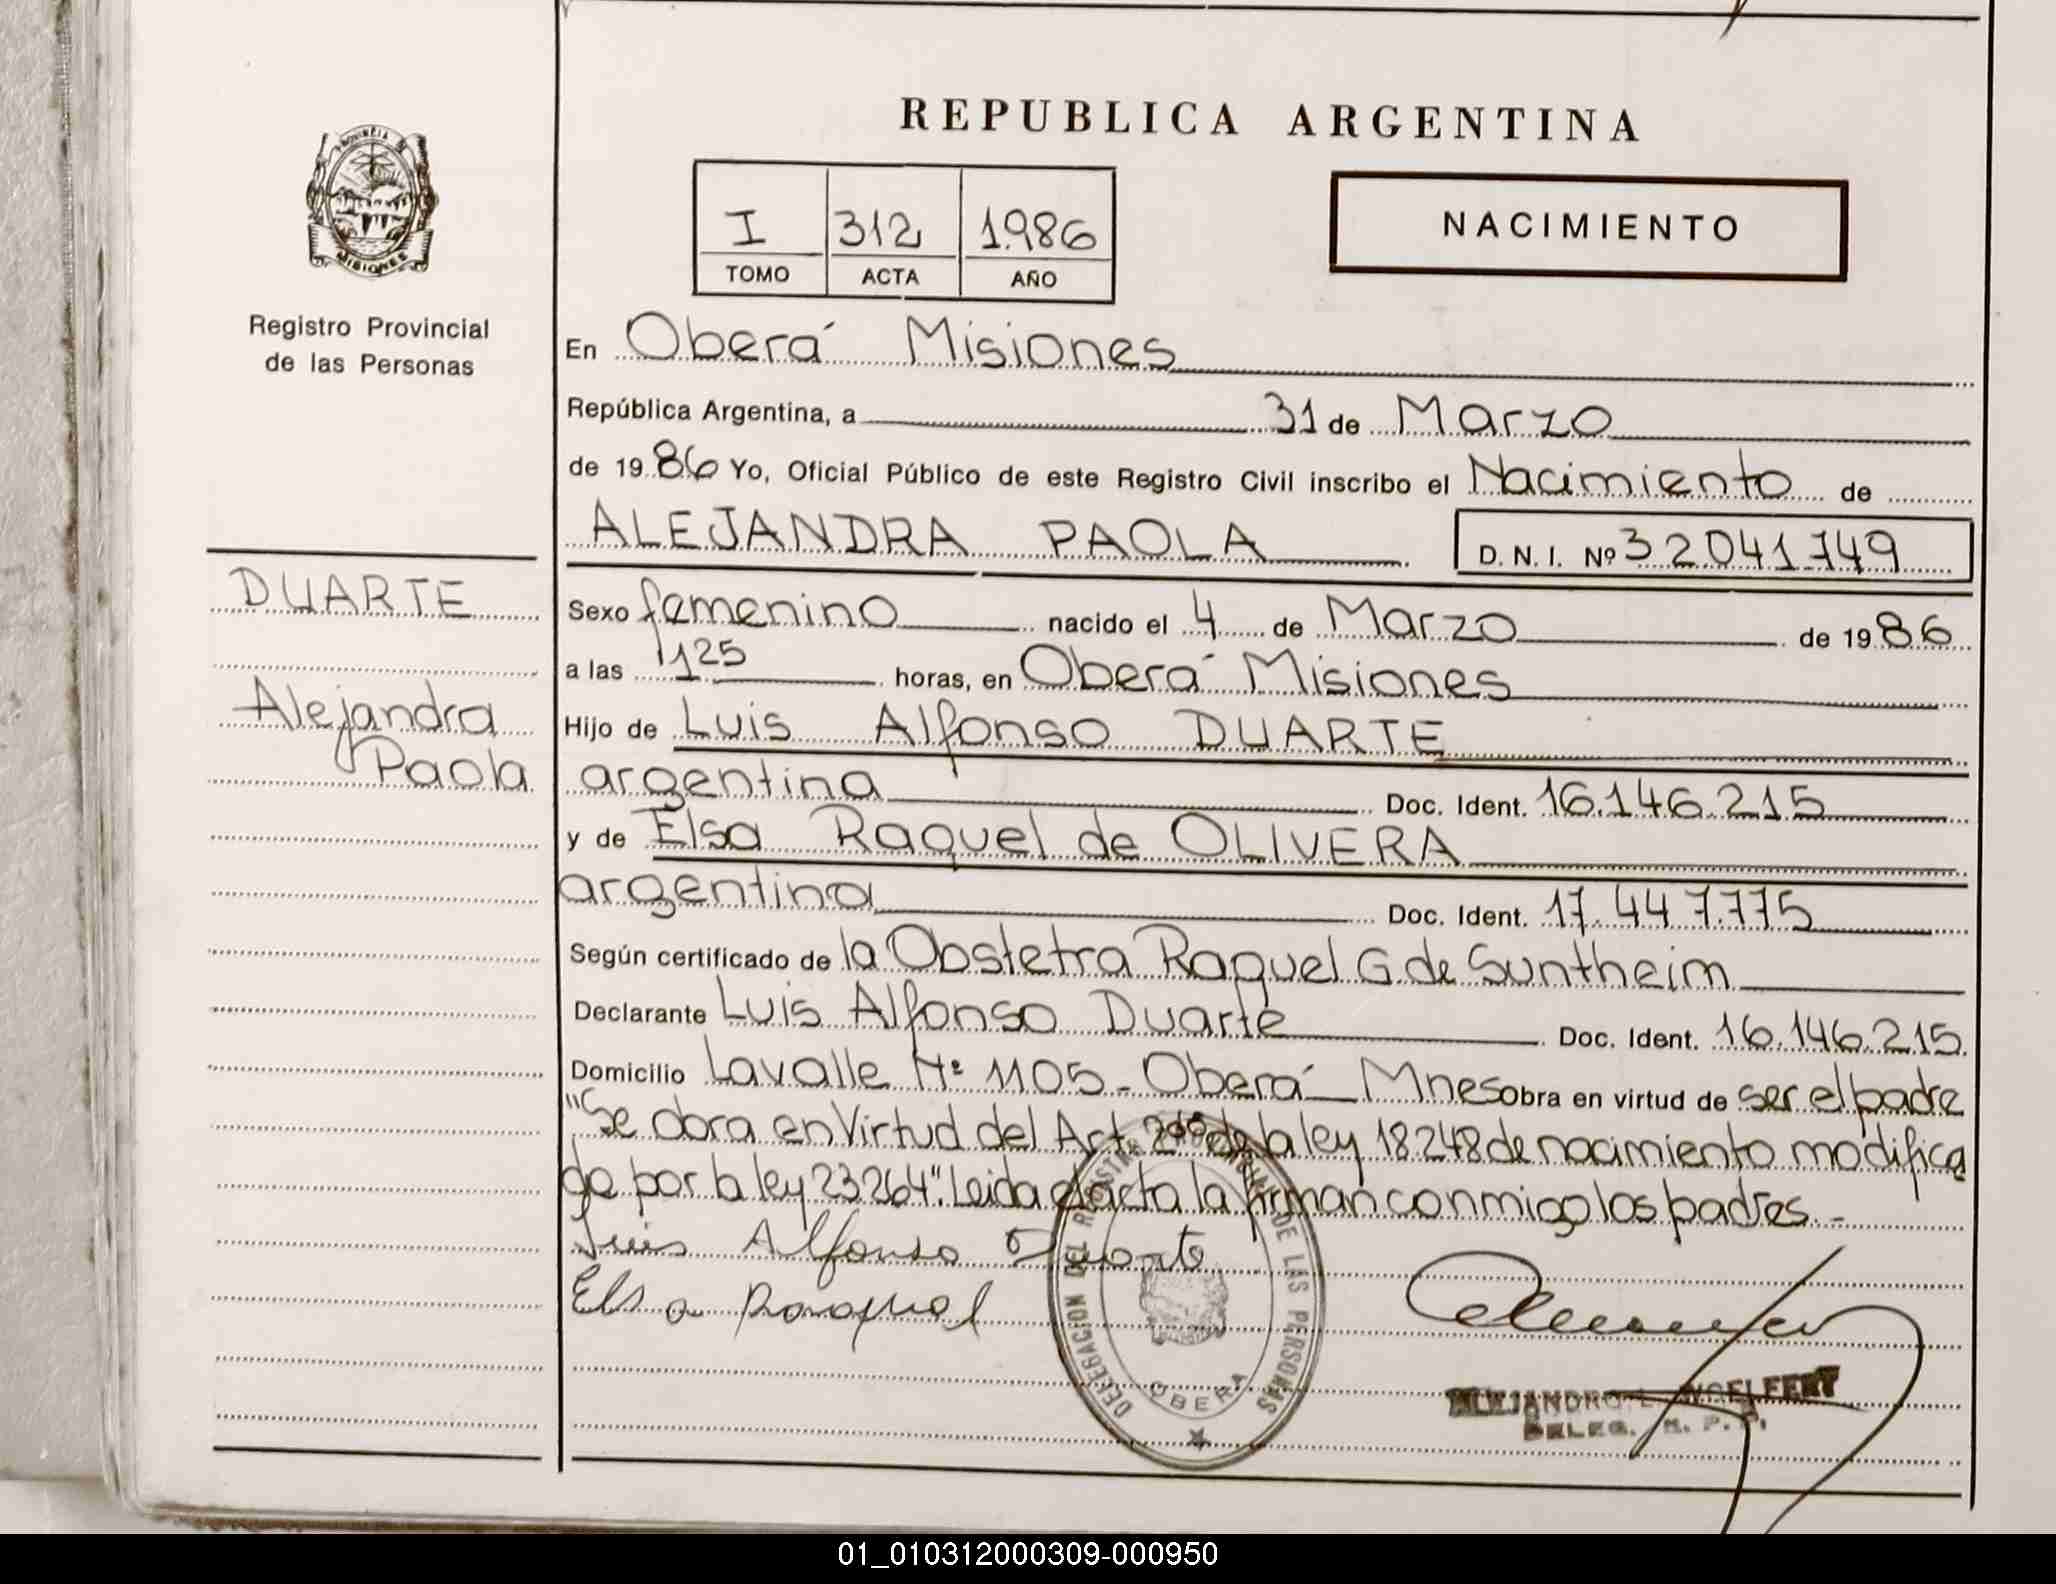 REPUBLICA ARGENTINA
PROVINCIA DE
MISIONES
Registro Provincial
de las Personas
I 312 1.986
TOMO ACTA AÑO
NACIMIENTO
En Oberá Misiones
República Argentina, a 31 de Marzo
de 19 86 Yo, Oficial Público de este Registro Civil inscribo el Nacimiento de
ALEJANDRA PAOLA D. N. I. Nº 32041749
DUARTE
Alejandra
Paola
Sexo femenino nacido el 4 de Marzo de 19 86
a las 1125 horas, en Oberá Misiones
Hijo de Luis Alfonso DUARTE
argentina Doc. Ident. 16.146.215
y de Elsa Raquel de OLIVERA
argentina Doc. Ident. 17.447.775
Según certificado de la Obstetra Raquel G. de Suntheim
Declarante Luis Alfonso Duarte Doc. Ident. 16.146.215
Domicilio Lavalle Nº 1105 - Oberá Mnes obra en virtud de ser el padre
"Se obra en Virtud del Art. de la ley 18248 de nacimiento modifica
por la ley 23264". Leida el acta la firman conmigo los padres. -
Luis Alfonso Duarte
Elsa Raquel
DELEGACION DEL REGISTRO PROVINCIAL DE LAS PERSONAS
OBERA
ALEJANDRO
DELEG. R. P. P.
01_010312000309-000950